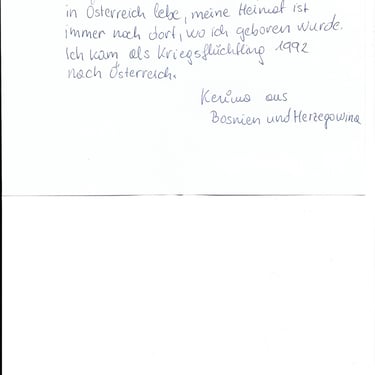 in Österreich lebe, meine Heimat ist
immer noch dort, wo ich geboren wurde.
Ich kam als Kriegsflüchtling 1992
nach Österreich.
Kerima aus
Bosnien und Herzegowina